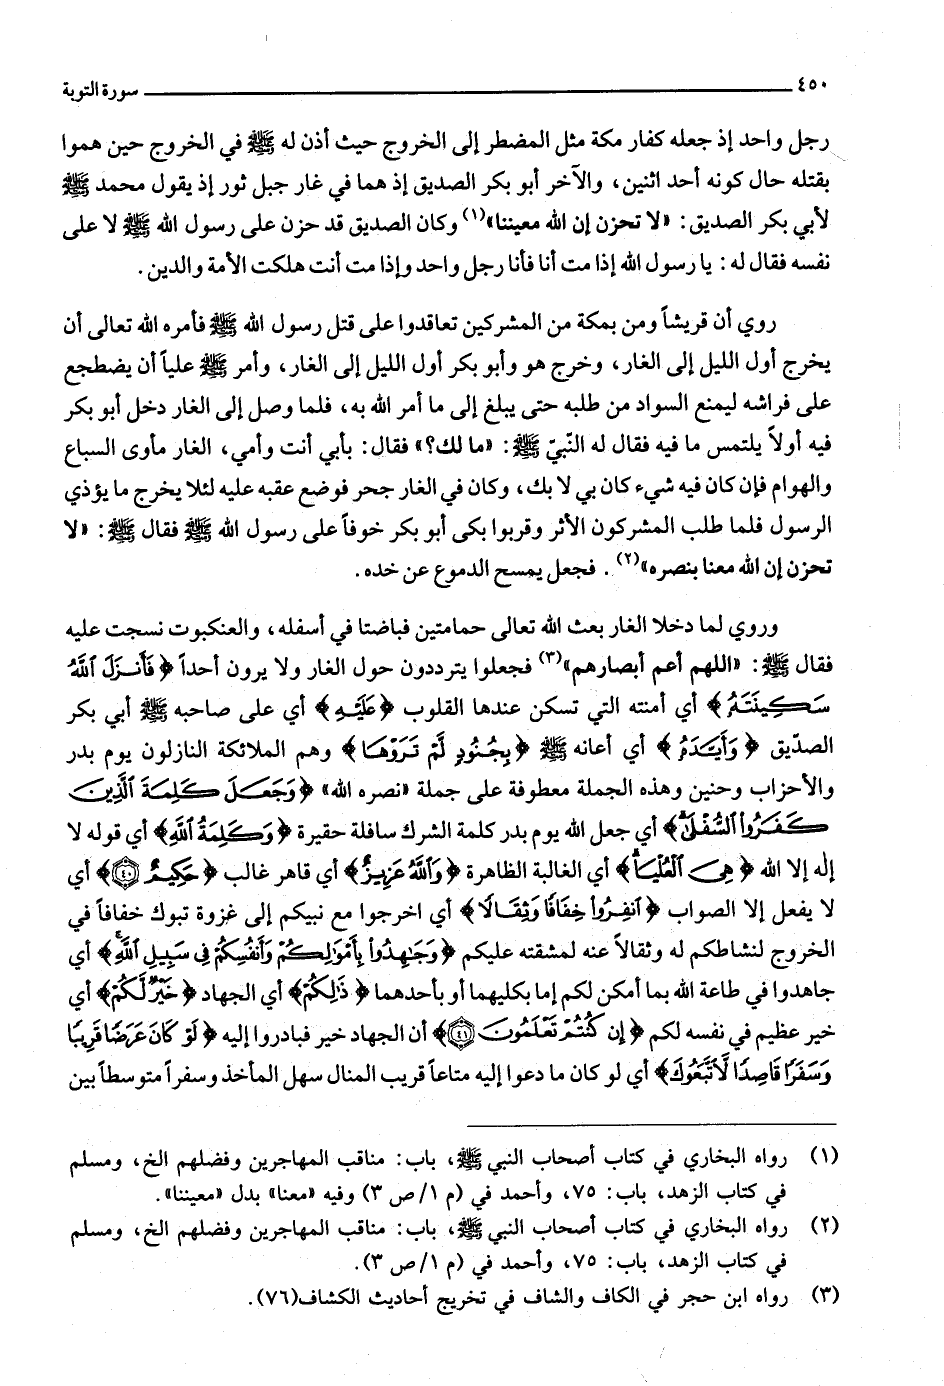 ٤٥٠ سورة التوبة
رجل واحد إذ جعله كفار مكة مثل المضطر إلى الخروج حيث أذن له ﷺ في الخروج حين هموا
بقتله حال كونه أحد اثنين، والآخر أبو بكر الصديق إذ هما في غار جبل ثور إذ يقول محمد ﷺ
لأبي بكر الصديق: «لا تحزن إن الله معيننا»(١) وكان الصديق قد حزن على رسول الله ﷺ لا على
نفسه فقال له: يا رسول الله إذا مت أنا فأنا رجل واحد وإذا مت أنت هلكت الأمة والدين.
روي أن قريشاً ومن بمكة من المشركين تعاقدوا على قتل رسول الله ﷺ فأمره الله تعالى أن
يخرج أول الليل إلى الغار، وخرج هو وأبو بكر أول الليل إلى الغار، وأمر ﷺ علياً أن يضطجع
على فراشه ليمنع السواد من طلبه حتى يبلغ إلى ما أمر الله به، فلما وصل إلى الغار دخل أبو بكر
فيه أولاً يلتمس ما فيه فقال له النّبيّ ﷺ: «ما لك؟» فقال: بأبي أنت وأمي، الغار مأوى السباع
والهوام فإن كان فيه شيء كان بي لا بك، وكان في الغار جحر فوضع عقبه عليه لئلا يخرج ما يؤذي
الرسول فلما طلب المشركون الأثر وقربوا بكى أبو بكر خوفاً على رسول الله ﷺ فقال ﷺ: «لا
تحزن إن الله معنا بنصره»(٢). فجعل يمسح الدموع عن خده.
وروي لما دخلا الغار بعث الله تعالى حمامتين فباضتا في أسفله، والعنكبوت نسجت عليه
فقال ﷺ: «اللهم أعم أبصارهم»(٣) فجعلوا يترددون حول الغار ولا يرون أحداً ﴿فَأَنزَلَ ٱللَّهُ
سَكِينَتَهُۥ﴾ أي أمنته التي تسكن عندها القلوب ﴿عَلَيْهِ﴾ أي على صاحبه ﷺ أبي بكر
الصدّيق ﴿وَأَيَّدَهُۥ﴾ أي أعانه ﷺ ﴿بِجُنُودٍ لَّمْ تَرَوْهَا﴾ وهم الملائكة النازلون يوم بدر
والأحزاب وحنين وهذه الجملة معطوفة على جملة «نصره الله» ﴿وَجَعَلَ كَلِمَةَ ٱلَّذِينَ
كَفَرُوا۟ ٱلسُّفْلَىٰ﴾ أي جعل الله يوم بدر كلمة الشرك سافلة حقيرة ﴿وَكَلِمَةُ ٱللَّهِ﴾ أي قوله لا
إلٰه إلا الله ﴿هِىَ ٱلْعُلْيَا﴾ أي الغالبة الظاهرة ﴿وَٱللَّهُ عَزِيزٌ﴾ أي قاهر غالب ﴿حَكِيمٌ ٤٠﴾ أي
لا يفعل إلا الصواب ﴿ٱنفِرُوا۟ خِفَافًا وَثِقَالًا﴾ أي اخرجوا مع نبيكم إلى غزوة تبوك خفافاً في
الخروج لنشاطكم له وثقالاً عنه لمشقته عليكم ﴿وَجَٰهِدُوا۟ بِأَمْوَٰلِكُمْ وَأَنفُسِكُمْ فِى سَبِيلِ ٱللَّهِ﴾ أي
جاهدوا في طاعة الله بما أمكن لكم إما بكليهما أو بأحدهما ﴿ذَٰلِكُمْ﴾ أي الجهاد ﴿خَيْرٌ لَّكُمْ﴾ أي
خير عظيم في نفسه لكم ﴿إِن كُنتُمْ تَعْلَمُونَ ٤١﴾ أن الجهاد خير فبادروا إليه ﴿لَوْ كَانَ عَرَضًا قَرِيبًا
وَسَفَرًا قَاصِدًا لَّٱتَّبَعُوكَ﴾ أي لو كان ما دعوا إليه متاعاً قريب المنال سهل المأخذ وسفراً متوسطاً بين
(١) رواه البخاري في كتاب أصحاب النبي ﷺ، باب: مناقب المهاجرين وفضلهم الخ، ومسلم
في كتاب الزهد، باب: ٧٥، وأحمد في (م ١/ ص ٣) وفيه «معنا» بدل «معيننا».
(٢) رواه البخاري في كتاب أصحاب النبي ﷺ، باب: مناقب المهاجرين وفضلهم الخ، ومسلم
في كتاب الزهد، باب: ٧٥، وأحمد في (م ١/ ص ٣).
(٣) رواه ابن حجر في الكاف والشاف في تخريج أحاديث الكشاف(٧٦).